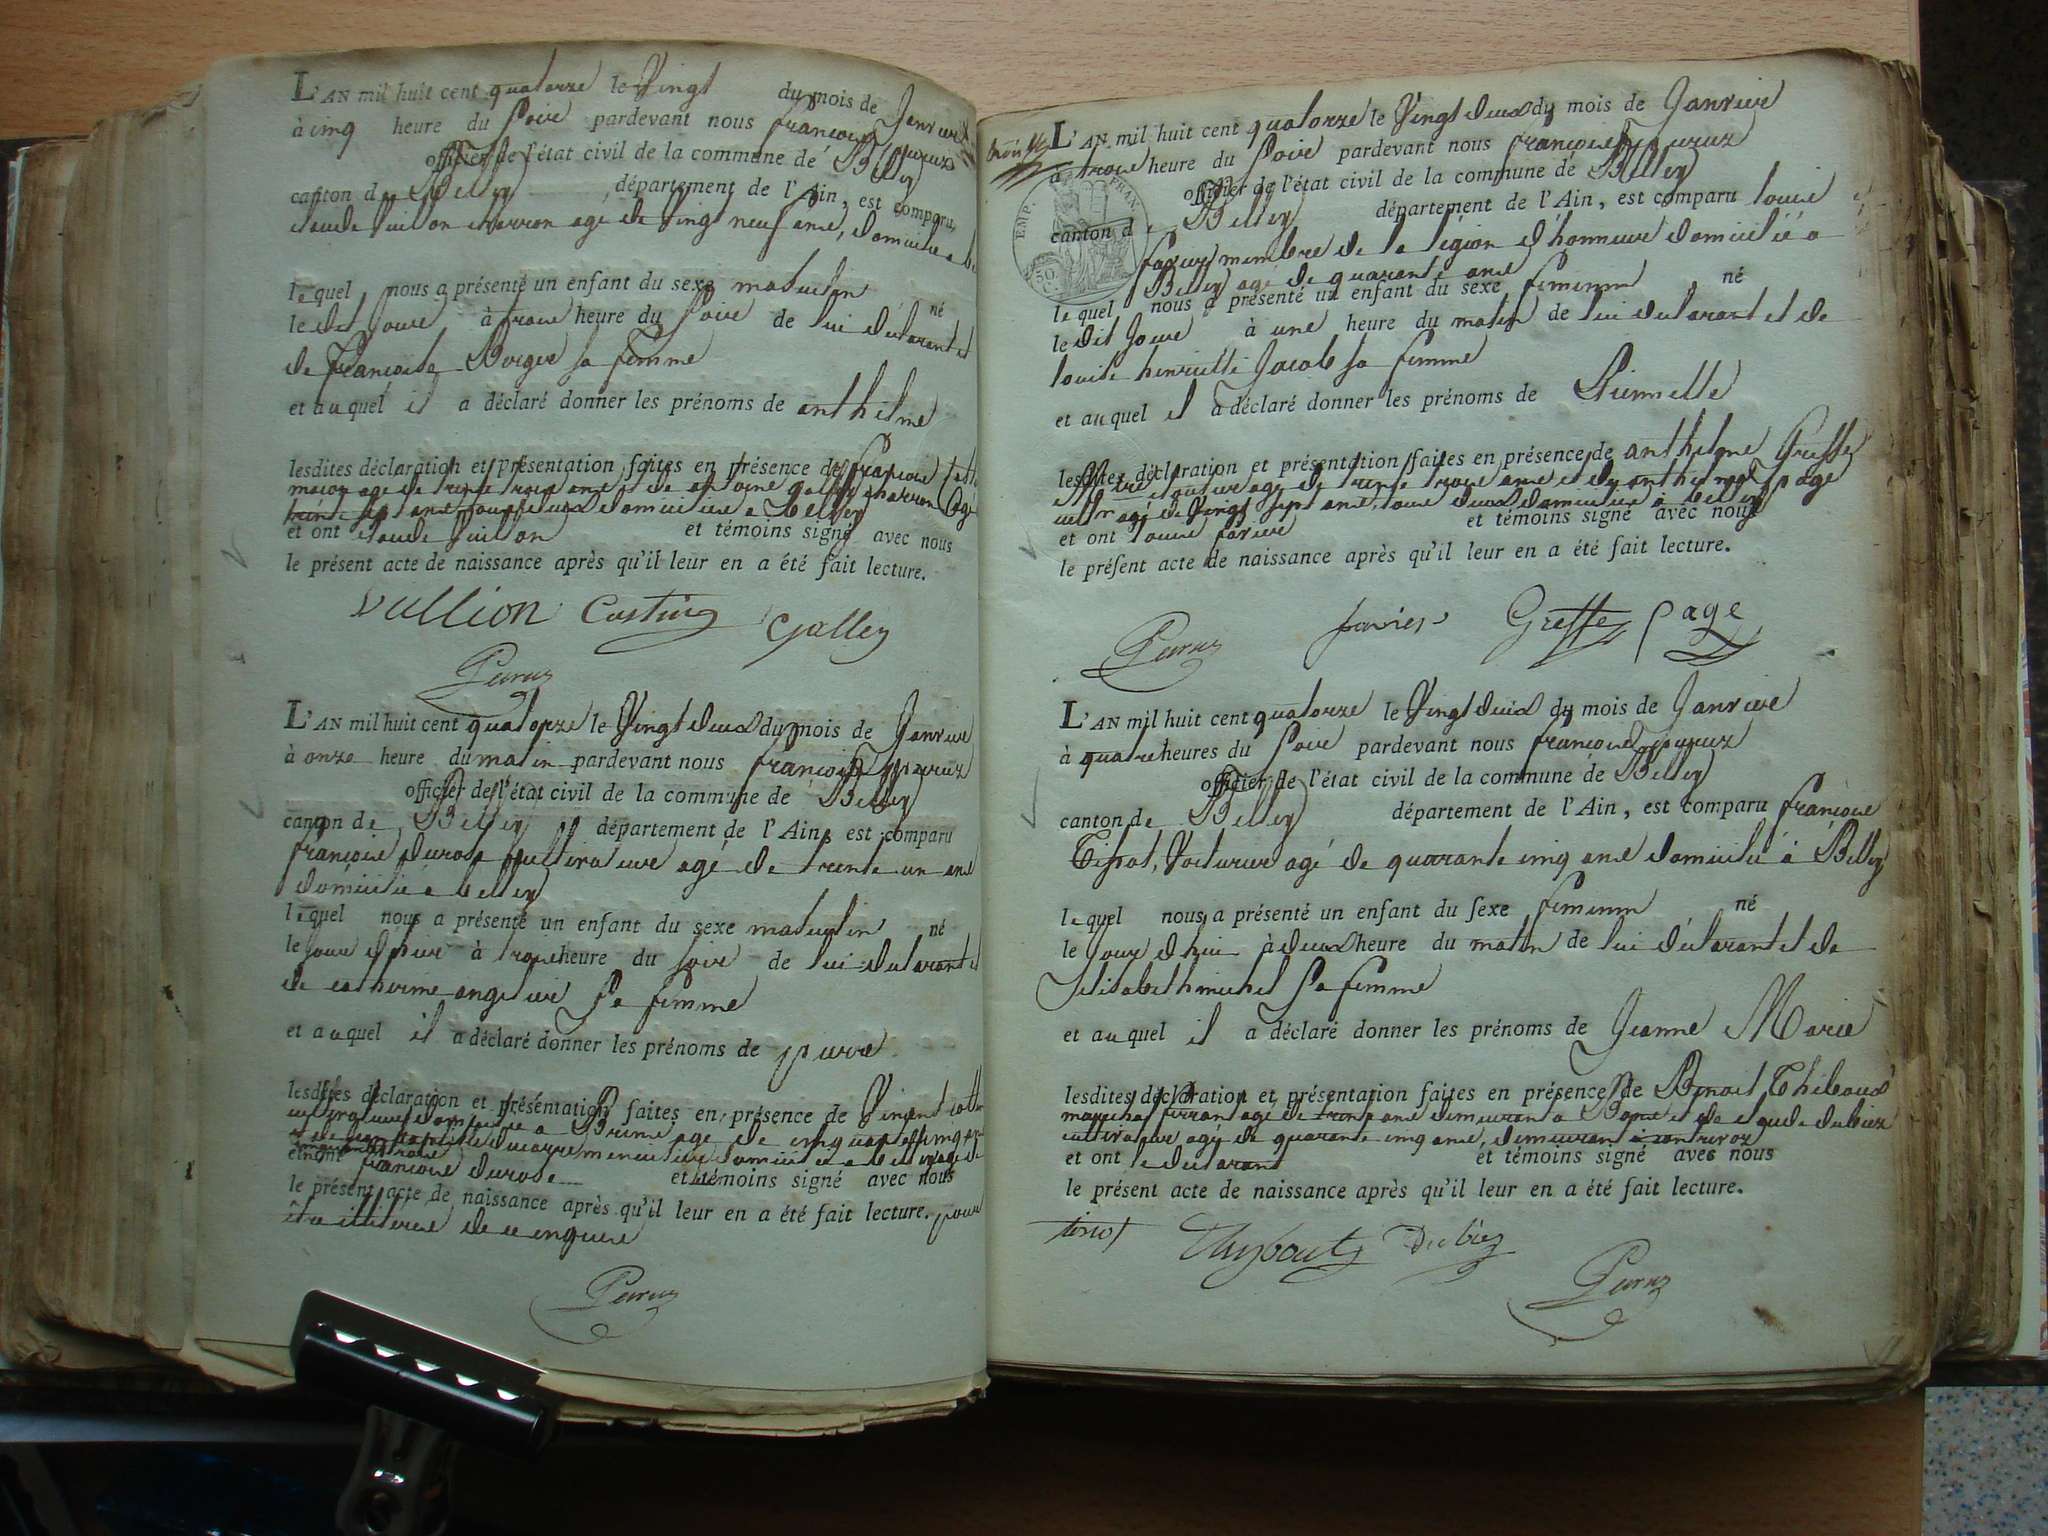 L'AN mil huit cent quatorze le Vingt du mois de Janvier
à cinq heure du soir pardevant nous françois
officier de l'état civil de la commune de Belley
canton de Belley département de l'Ain, est comparu
claude charron agé de vingt neuf ans, domicilié a
lequel nous a présenté un enfant du sexe masculin né
le dit jour à trois heure du soir de lui déclarant et
de françoise Berger sa femme
et auquel il a déclaré donner les prénoms de anthelme
lesdites déclaration et présentation faites en présence de françois
maçon agé de trente trois ans et de antoine galley charron agé
ans tous deux domicilié a Belley
et ont claude et témoins signé avec nous
le présent acte de naissance après qu'il leur en a été fait lecture.
Vullion Costing Galley
Peruz
L'AN mil huit cent quatorze le Vingt deux du mois de Janvier
à onze heure du matin pardevant nous françois
officier de l'état civil de la commune de Belley
canton de Belley département de l'Ain, est comparu
françois durose cultivateur agé de trente un ans
domicilié a belley
lequel nous a présenté un enfant du sexe masculin né
le jour d'hier à trois heure du soir de lui déclarant et
de catherine sa femme
et auquel il a déclaré donner les prénoms de pierre
lesdites déclaration et présentation faites en présence de Vincent
cultivateur a agé de cinquante cinq ans
domicilié a
et ont françois durose et témoins signé avec nous
le présent acte de naissance après qu'il leur en a été fait lecture. pour
être illiteré de ce enquis
Peruz
EMP. FRAN
50 C.
L'AN mil huit cent quatorze le Vingt deux du mois de Janvier
à trois heure du soir pardevant nous françois
officier de l'état civil de la commune de Belley
canton de Belley département de l'Ain, est comparu louis
favier membre de la légion d'honneur domicilié a
Belley agé de quarante ans
lequel nous a présenté un enfant du sexe feminin né
le dit jour à une heure du matin de lui déclarant et de
louise henriette Jacob sa femme
et auquel il a déclaré donner les prénoms de Pierrette
lesdites déclaration et présentation faites en présence de anthelme Greffe
agé de trente trois ans et de anthelme page
agé de vingt sept ans, tous deux domicilié a belley
et ont louis favier et témoins signé avec nous
le présent acte de naissance après qu'il leur en a été fait lecture.
Peruz favier Greffe page
L'AN mil huit cent quatorze le Vingt deux du mois de Janvier
à quatre heures du soir pardevant nous françois
officier de l'état civil de la commune de Belley
canton de Belley département de l'Ain, est comparu françois
Tissot, Voiturier agé de quarante cinq ans domicilié à Belley
lequel nous a présenté un enfant du sexe feminin né
le jour d'hui à deux heure du matin de lui déclarant et de
Elisabeth michel sa femme
et auquel il a déclaré donner les prénoms de Jeanne Marie
lesdites déclaration et présentation faites en présence de Benoit Thibaud
marechal ferrant agé de trente ans demeurant a et de claude dubiez
cultivateur agé de quarante cinq ans, demeurant à
et ont le declarant et témoins signé avec nous
le présent acte de naissance après qu'il leur en a été fait lecture.
tissot Thybout Dubiez
Peruz